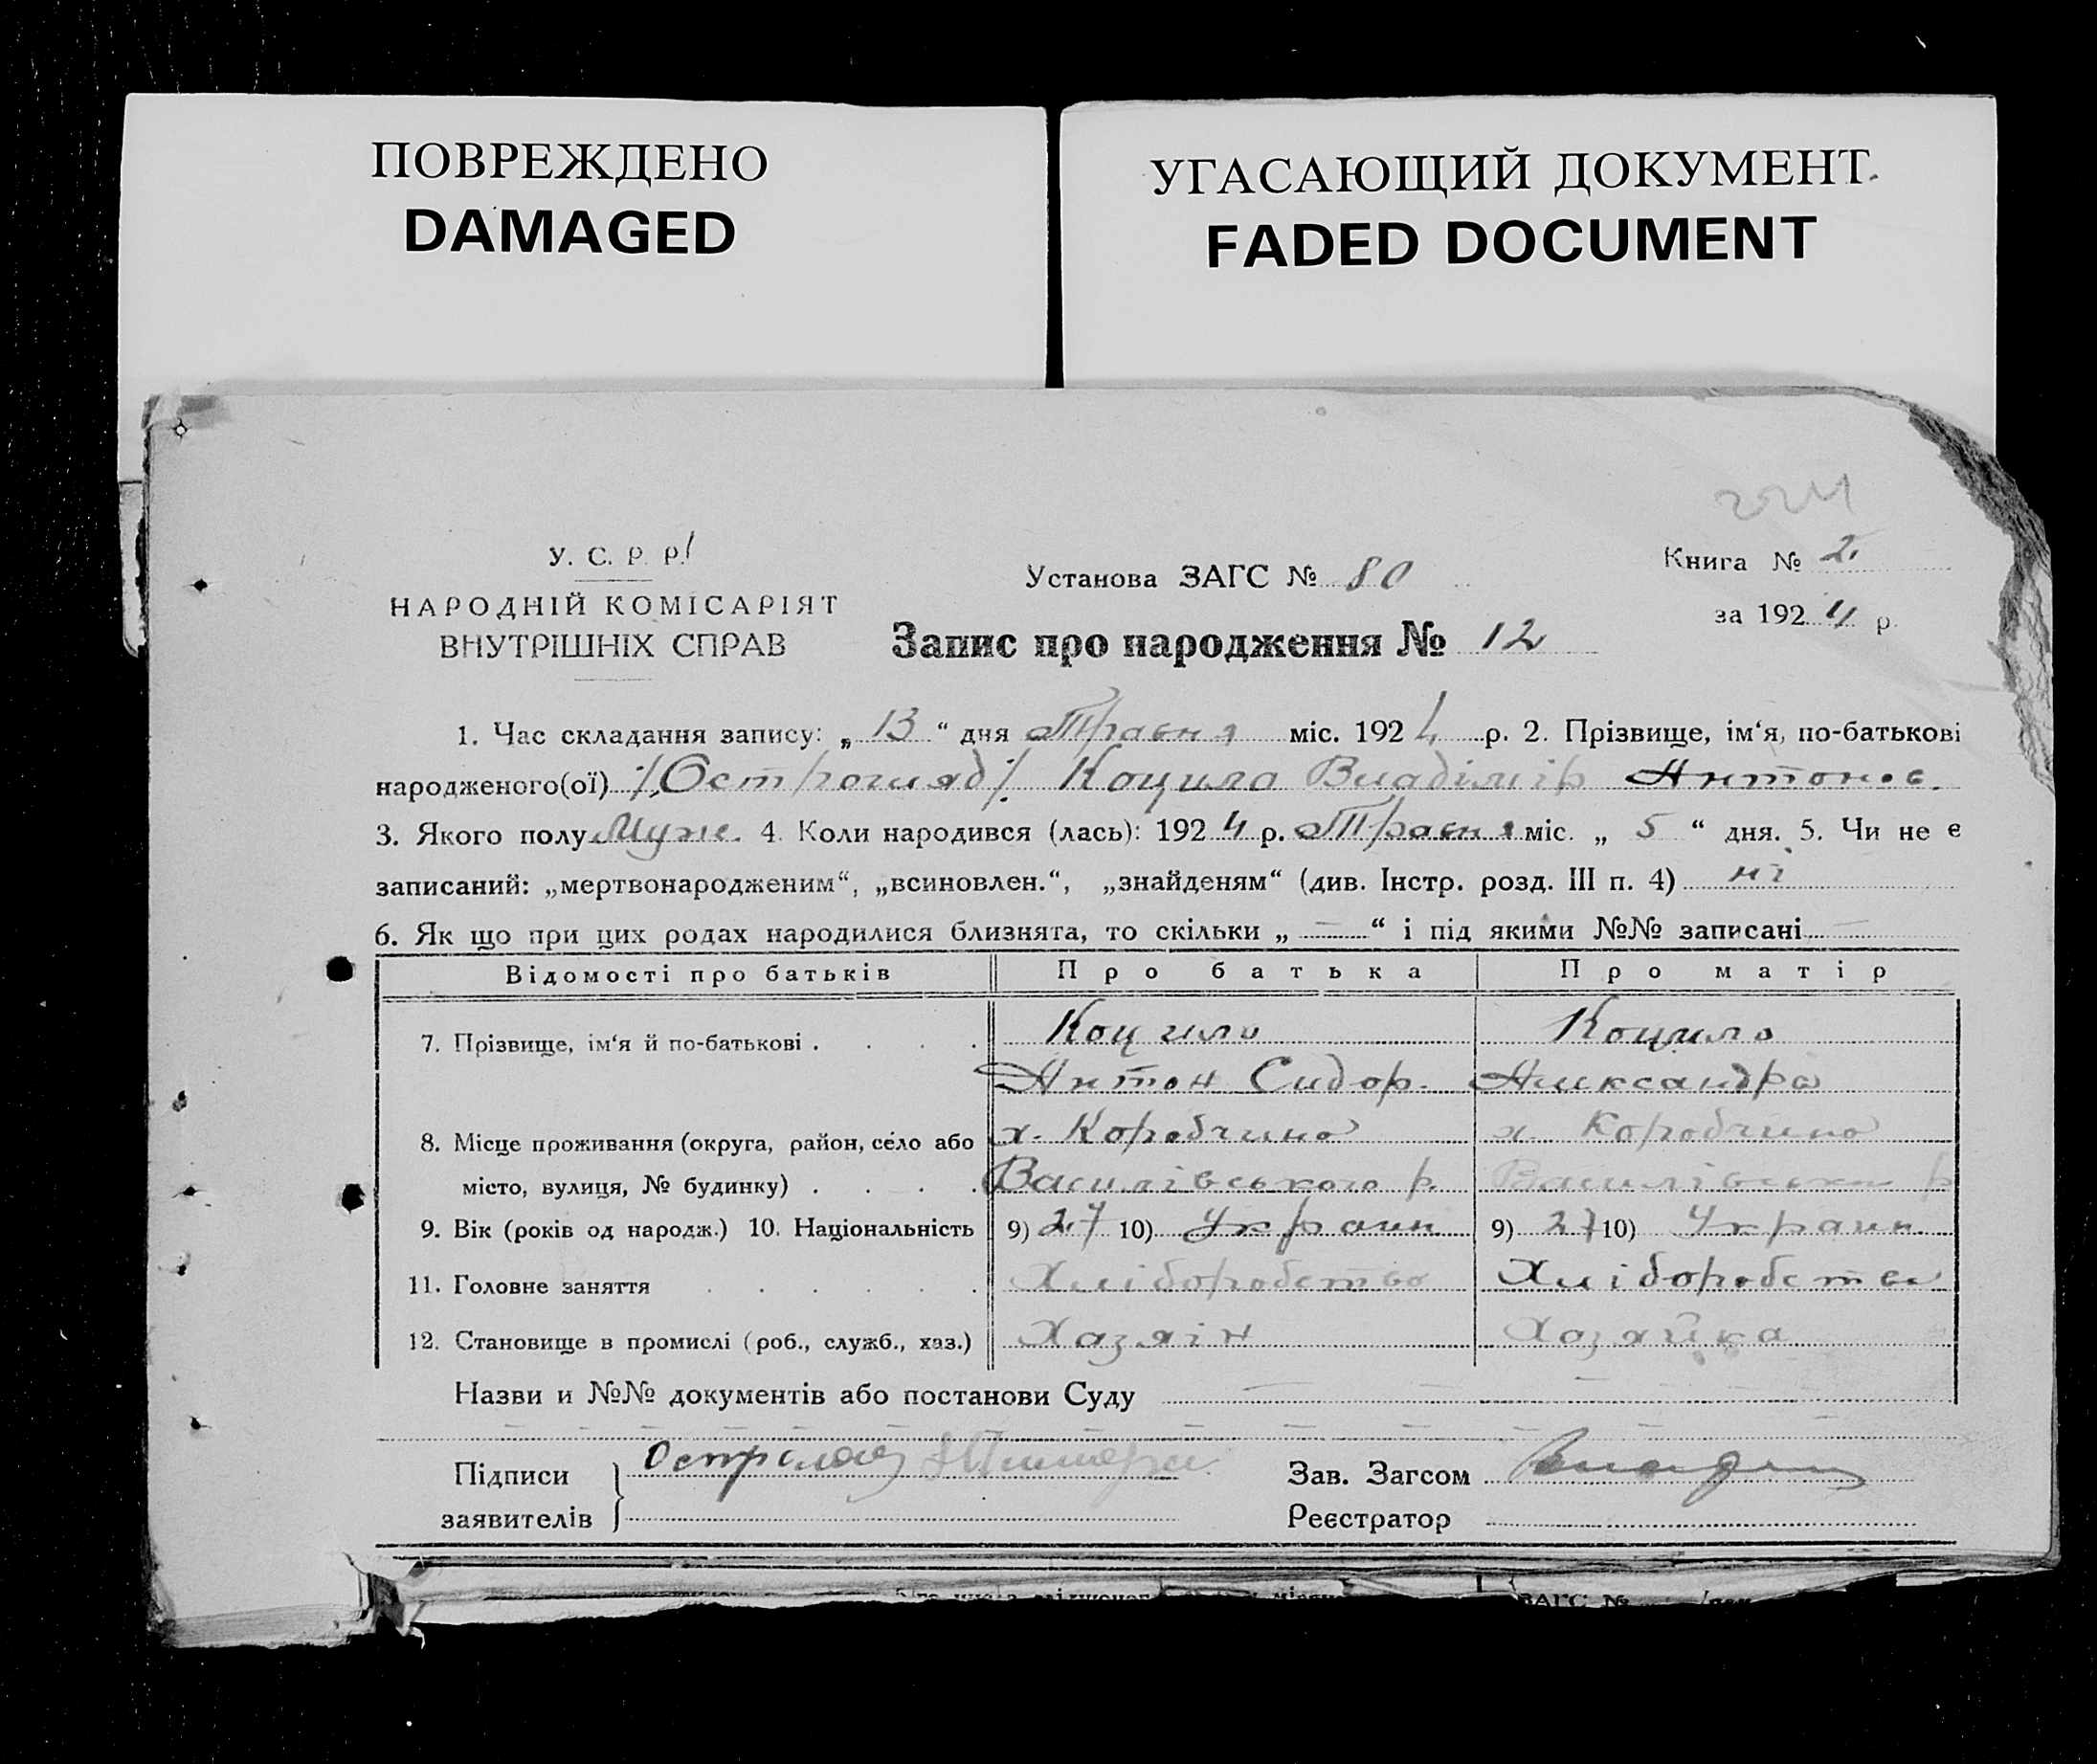 ПОВРЕЖДЕНО
DAMAGED
УГАСАЮЩИЙ ДОКУМЕНТ
FADED DOCUMENT
224
У. С. Р. Р.
НАРОДНІЙ КОМІСАРІЯТ
ВНУТРІШНІХ СПРАВ
Установа ЗАГС № 80
Книга № 2.
за 1924 р.
Запис про народження № 12
1. Час складання запису: „ 13 “ дня Травня міс. 1924 р. 2. Прізвище, ім‘я, по-батькові
народженого(ої) /Острогляд/ Коцило Владімір Антонов.
3. Якого полу Муж. 4. Коли народився (лась): 1924 р. Травня міс. „ 5 “ дня. 5. Чи не є
записаний: „мертвонародженим“, „всиновлен.“, „знайденям“ (див. Інстр. розд. III п. 4) ні
6. Як що при цих родах народилися близнята, то скільки „ — “ і під якими №№ записані —
Відомості про батьків Про батька Про матір
7. Прізвище, ім‘я й по-батькові . . . . Коцило Коцило
Антон Сидор. Александра
8. Місце проживання (округа, район, село або х. Коробчино х. Коробчино
місто, вулиця, № будинку) . . . . Василівського р. Василівськ р
9. Вік (років од народж.) 10. Національність 9) 27 10) Украин 9) 27 10) Украин.
11. Головне заняття . . . . . . Хліборобство Хліборобств
12. Становище в промислі (роб., служб., хаз.) Хазяін Хозяйка
Назви и №№ документів або постанови Суду —
Підписи
заявителів
Зав. Загсом
Реєстратор
ЗАГС №